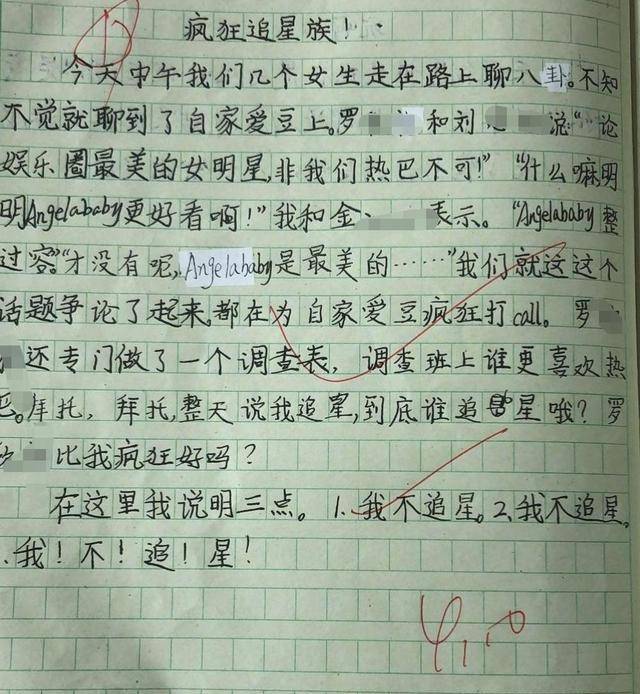 疯狂追星族!
今天中午我们几个女生走在路上聊八卦。不知
不觉就聊到了自家爱豆上。罗 和刘 说“论
娱乐圈最美的女明星,非我们热巴不可!”“什么嘛明
明Angelababy更好看啊!”我和金 表示。“Angelababy整
过容。”“才没有呢,Angelababy是最美的……”我们就这这个
话题争论了起来,都在为自家爱豆疯狂打call。罗
还专门做了一个调查表,调查班上谁更喜欢热
巴。拜托,拜托,整天说我追星,到底谁追星哦?罗
比我疯狂好吗?
在这里我说明三点。1.我不追星。2.我不追星。
.我!不!追!星!